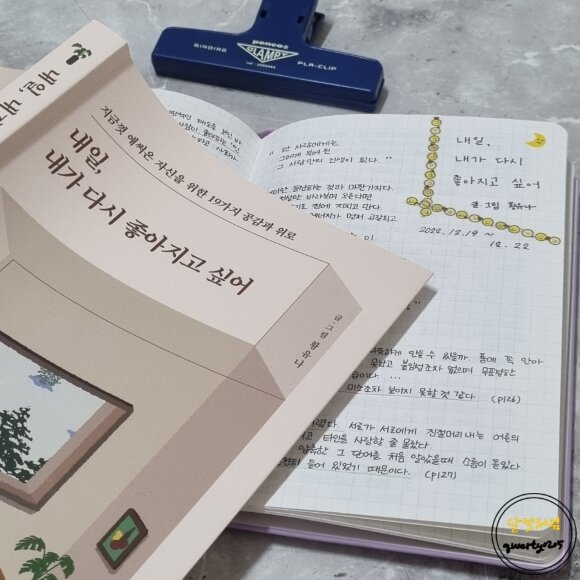 지금껏 애써온 자신을 위한 19가지 공감과 위로
내일,
내가 다시 좋아지고 싶어
글·그림 황유나
내일
penco®
BINDING
CLAMPY
PLA-CLIP
" 한 사람에게는
그에게 부여된
그 사람만의 인생이 있다. "
내일,
내가 다시
좋아지고 싶어
글·그림 황유나
2022.12.19 ~
12.22
등산하는 것과 마찬가지다.
바라보며 오른다면
전에 지치고 만다.
에너지가 먼저 고갈되고
따뜻하게 안을 수 있을까. 품에 쏙 안아
붙임성조차 없으며 무표정한
미소조차 보이지 못할 것 같다. (p126)
서로가 서로에게 진절머리 내는 어른의
타인을 사랑할 줄 몰랐다.
그 단어를 처음 알았을때 소름이 돋았다.
들어 있었기 때문이다. (p127)
qwerty025